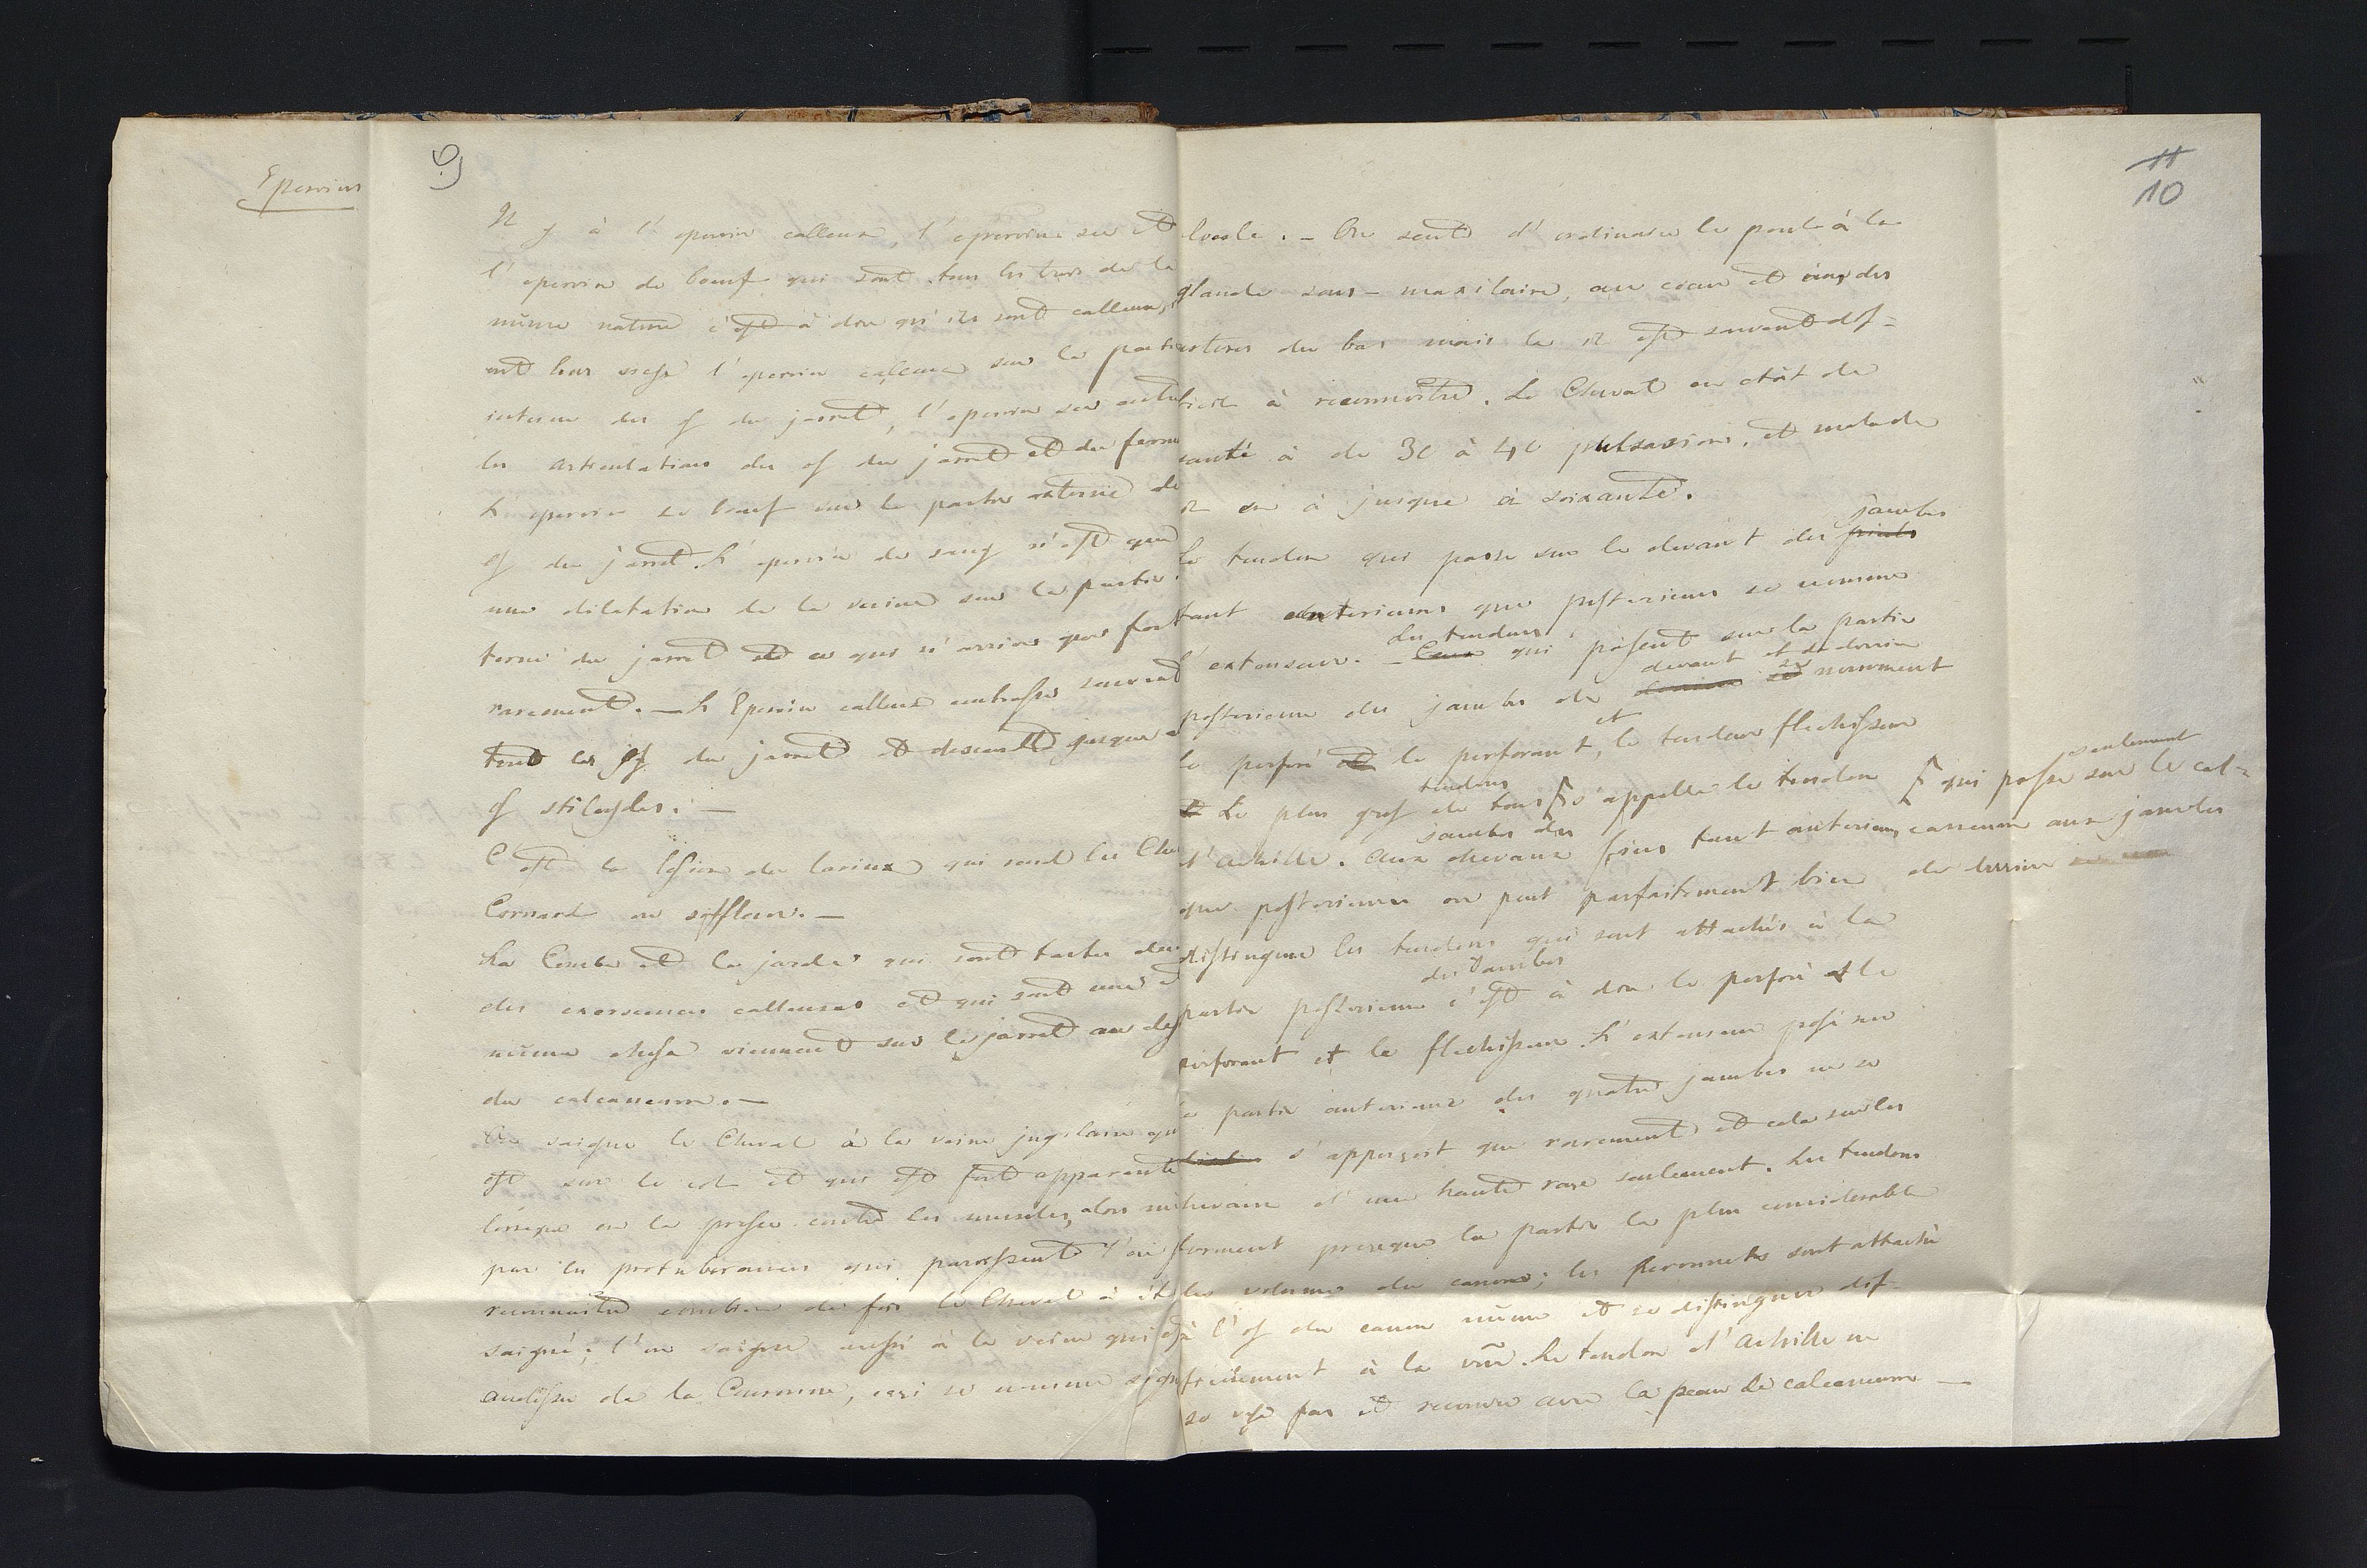 Epervins
9)
Il y à l'epervin calleux, l'epervin sec et
l'epervin de boeuf qui sont tous les trois de la
même nature c'est à dire qu'ils sont calleux,
ont leur siege l'epervin calleux sur la partie
interne des os du jarret, l'epervin sec entre
les articulations des os du jarret et du femur
L'epervin de boeuf sur la partie externe de
os du jarret. L'epervin de sang n'est que
une dilatation de la veine sur la partie
terne du jarret et ce qui n'arrive que fort
rarement. — L'Epervin calleux embrasse souvent
tout les os du jarret et descend jusque a
os stiloydes. —
C'est la lesion du larinx qui rend les Che
Cornards ou siffleurs. —
La Courbe et la jarde qui sont toutes deux
des exorscences calleuses et qui sont une et
même chose viennent sur le jarret au des
du calcaneum. —
On saigne le Cheval à la veine jugulaire qu
est sur le col et qui est fort apparente
lorsque on la presse contre les muscles, alors mê
par les protuberances qui paroissent l'on
reconnaitre combien de fois le Cheval à ét
saigné; l'on saigne aussi à la veine qui es
audessu de la Couronne, ceci se nomme saign
11
10
locale. — On sent d'ordinaire le pouls à la
glande sous-maxilaire, au coeur et aux
arteres du bas mais la il est souvent dif=
ficile à reconnoitre. Le Cheval en etât de
santé à de 30 à 40 pulsasions, et malade
il en à jusque à soixante.
jambes
Le tendon qui passe sur le devant des pieds
tant anterieurs que posterieurs se nomme
Les tendons
l'extenseur. — Ceux qui posent sur la partie
devant et de derrière
posterieure des jambes de derriere se nomment
et
le perforé et le perforant, le tendon flechisseur
tendons seulement
et Le plus gros de tous s'appelle le tendon qui passe sur le cal=
jambes des
d'Achille. Aux chevaux fins tant anterieurs caneum aux jambes
que posterieures on peut parfaitement bien de derriere
distinguer les tendons qui sont attachés à la
des Jambes
partie posterieure c'est à dire le perforé et le
perforant et le flechisseur. L'extenseur posé sur
la partie anterieure des quatre jambes ne se
s'apperçoit que rarement et cela sur les
chevaux d'une haute race seulement. Les tendons
forment presque la partie la plus considerable
des volumes du canon; les Peronnets sont attachés
à l'os du canon même et se distinguer dif-
ficilement à la vûe. Le tendon d'Achille ne
se voye pas et recouvre avec la peau le calcaneum —